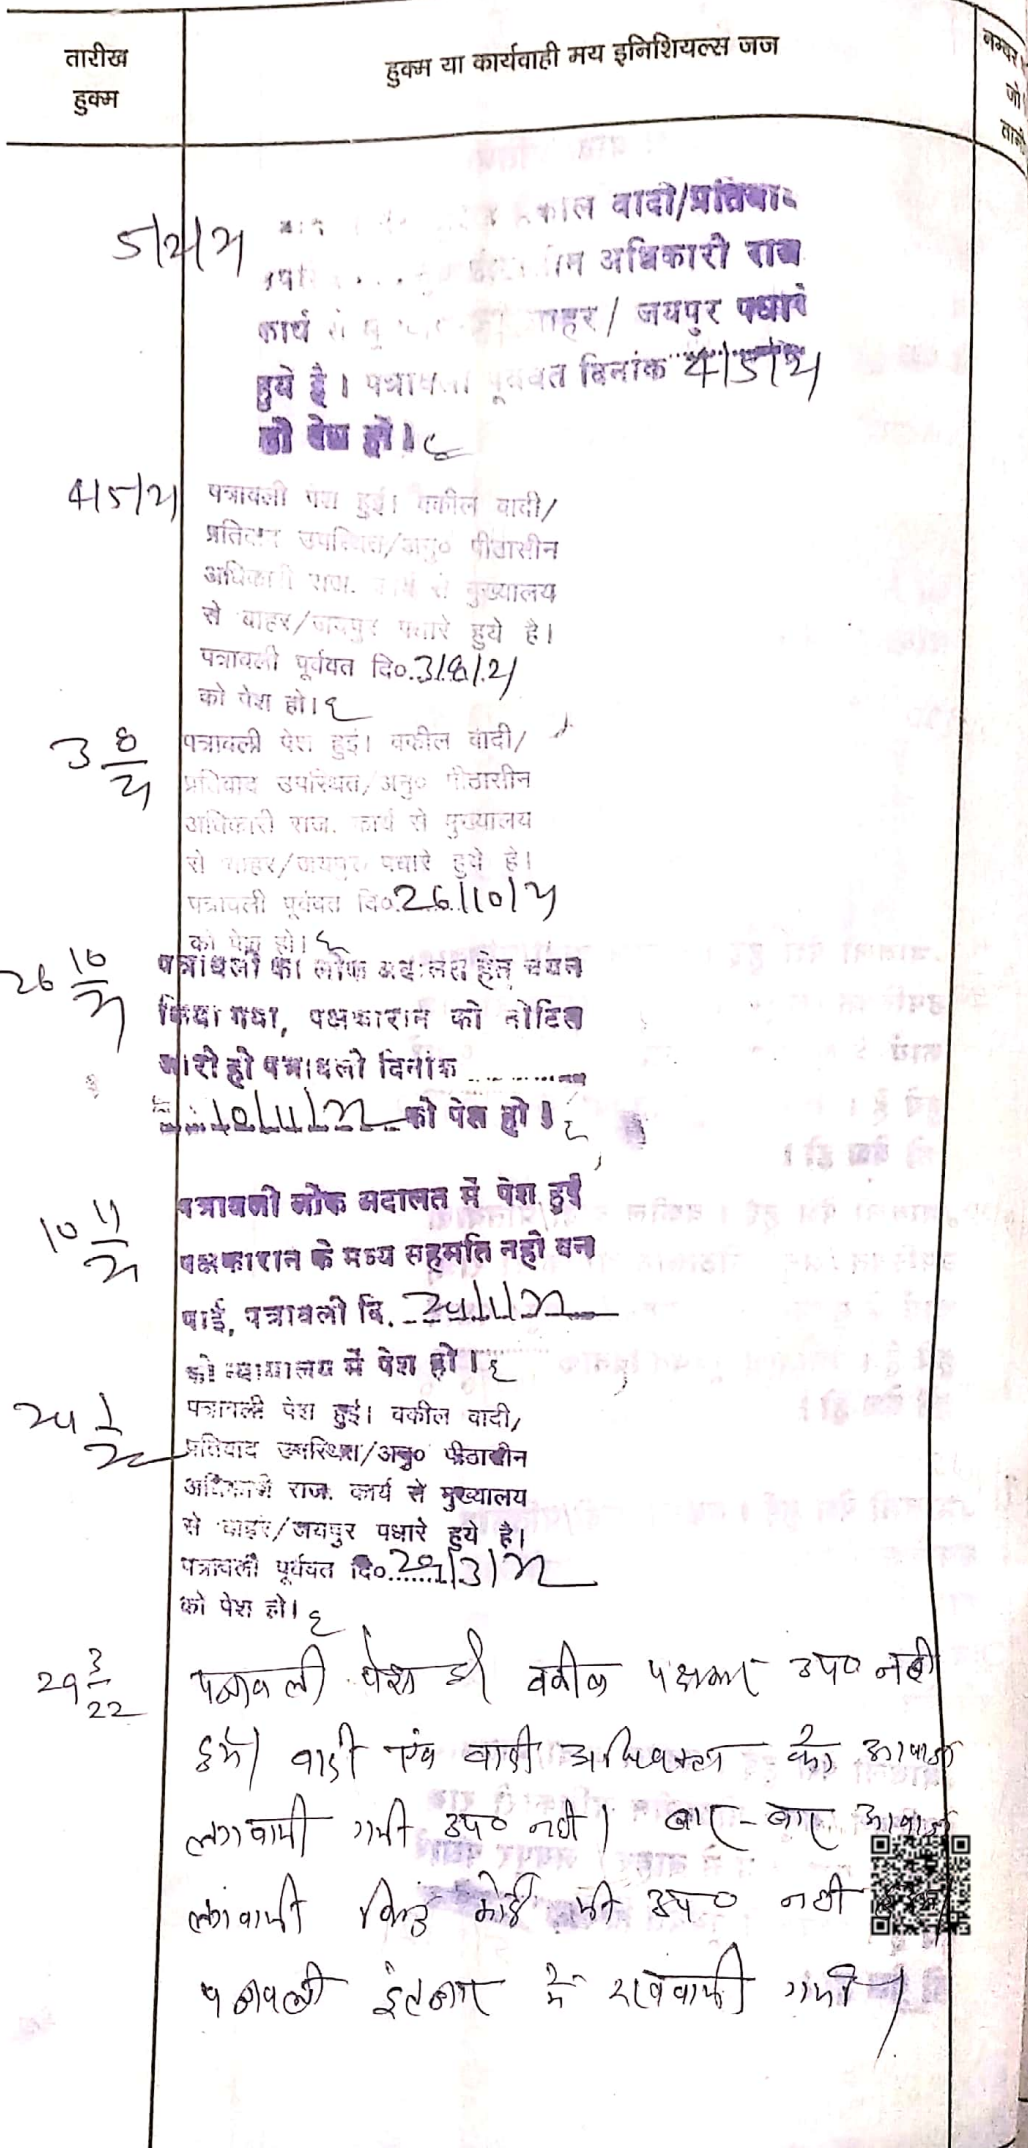 तारीख
हुक्म
हुक्म या कार्यवाही मय इनिशियल्स जज
नम्बर
जो
5/2/21
वकील वादी/प्रतिवाद
अधिकारी राज
कार्य से मु बाहर/ जयपुर पधारे
हुये है। पत्रावली पूर्ववत दिनांक 4/5/21
को पेश हो।
4/5/21
पत्रावली पेश हुई। वकील वादी/
प्रतिवाद उपस्थित/अनु० पीठासीन
अधिकारी राज. कार्य से मुख्यालय
से बाहर/जयपुर पधारे हुये है।
पत्रावली पूर्ववत दि०.3/8/21
को पेश हो।
3 8/21
पत्रावली पेश हुई। वकील वादी/
प्रतिवाद उपस्थित/अनु० पीठासीन
अधिकारी राज. कार्य से मुख्यालय
से बाहर/जयपुर पधारे हुये है।
पत्रावली पूर्ववत दि०.26/10/21
को पेश हो।
26 10/21
पत्रावली का लोक अदालत हेतु चयन
किया गया, पक्षकारान को नोटिस
जारी हो पत्रावली दिनांक ............
को पेश हो।
10 11/21
पत्रावली लोक अदालत में पेश हुई
पक्षकारान के मध्य सहमति नही बन
पाई, पत्रावली दि.
को न्यायालय में पेश हो।
पत्रावली पेश हुई। वकील वादी/
प्रतिवाद उपस्थित/अनु० पीठासीन
अधिकारी राज. कार्य से मुख्यालय
से बाहर/जयपुर पधारे हुये है।
पत्रावली पूर्ववत दि०
को पेश हो।
29 3/22
पत्रावली पेश हुई वकील पक्षकार उप० नही
हुये। वादी एंव वादी अधिवक्ता को आवाज
लगवायी गयी उप० नही। बार-बार आवाज
लगवायी किन्तु कोई भी उप० नही
पत्रावली इंतजार में रखवायी गयी।